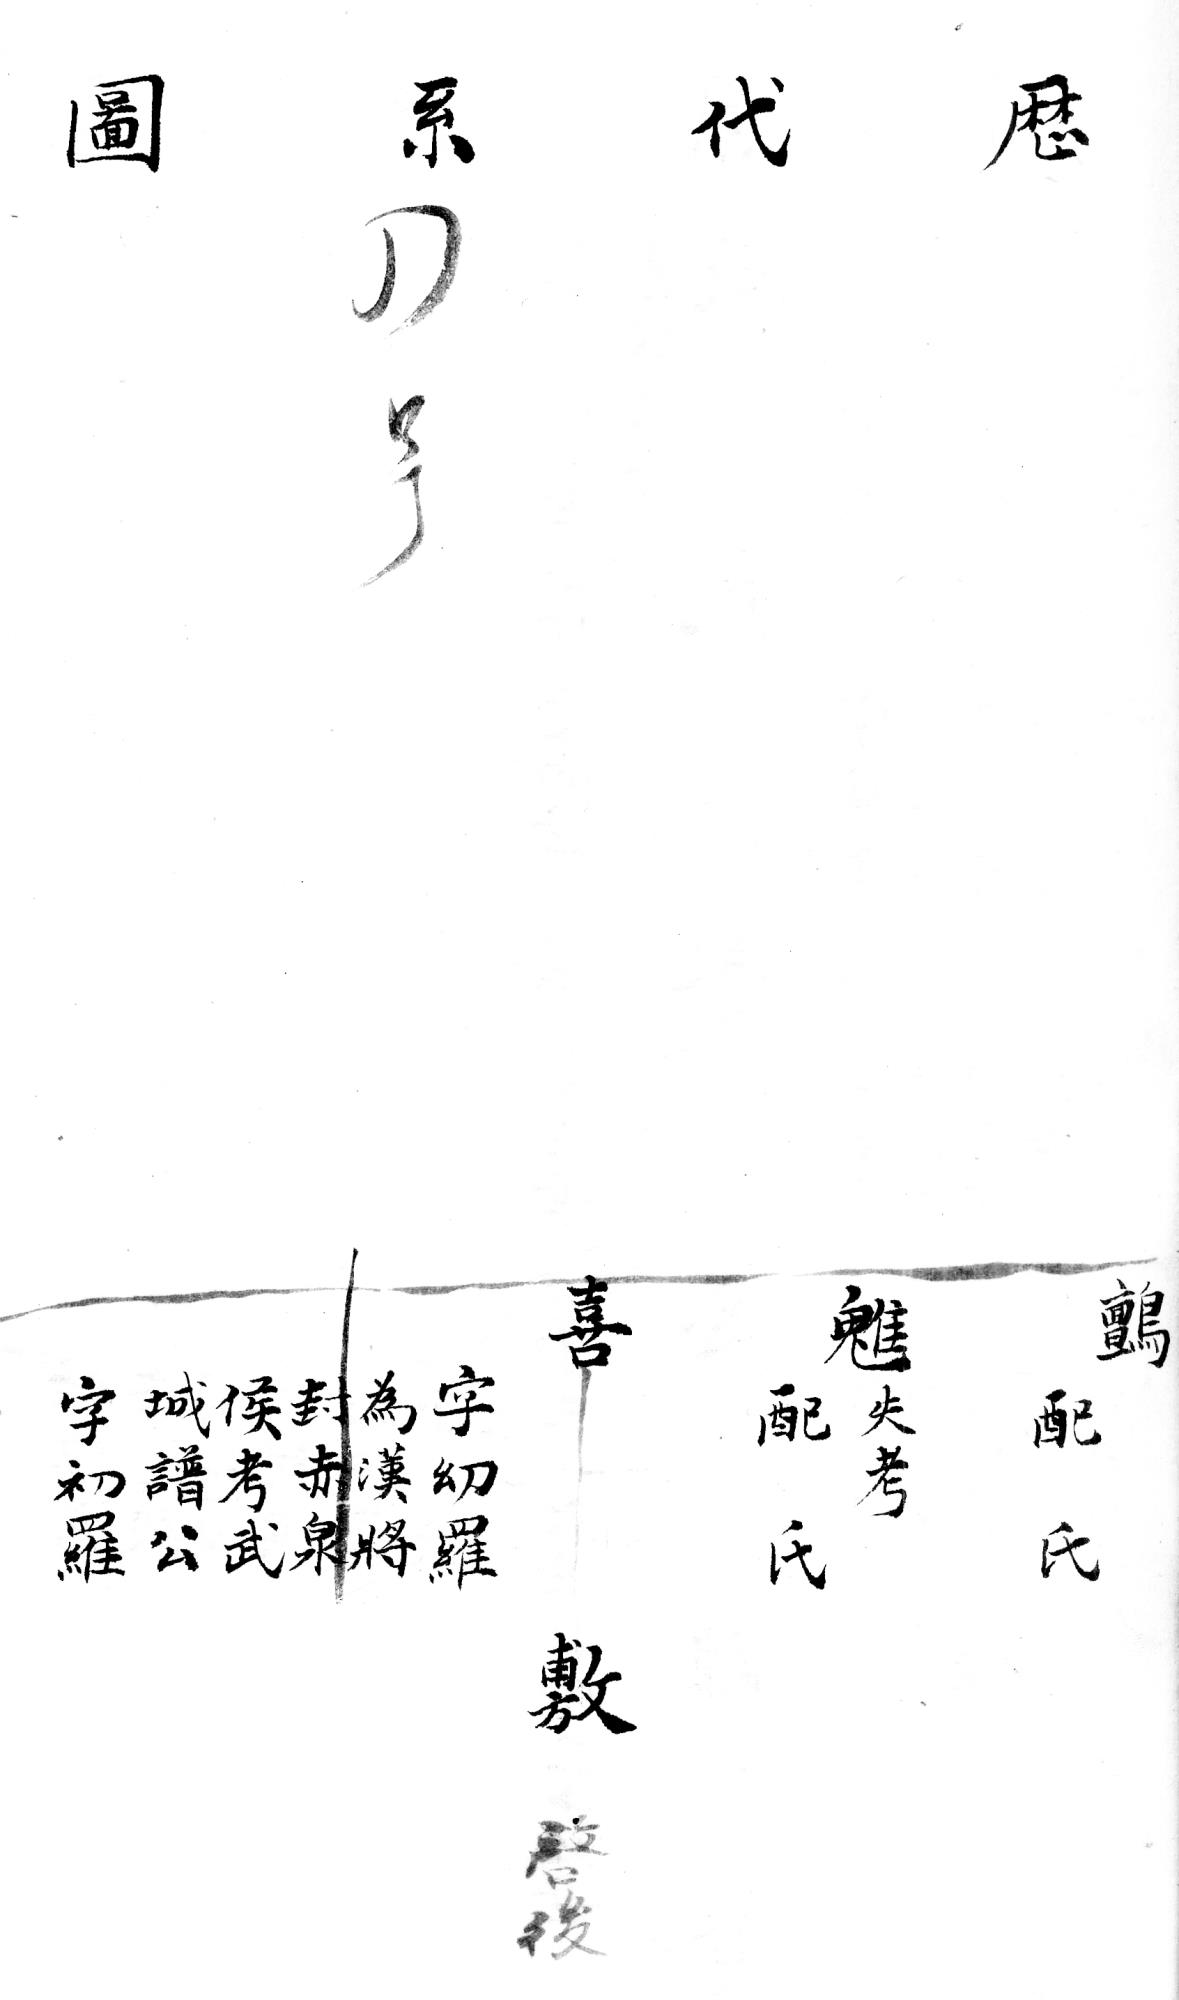 歴代系圖
鸇
配氏
魋
失考
配氏
喜
字幼羅
為漢將
封赤泉
侯考武
城譜公
字初羅
敷
啓後